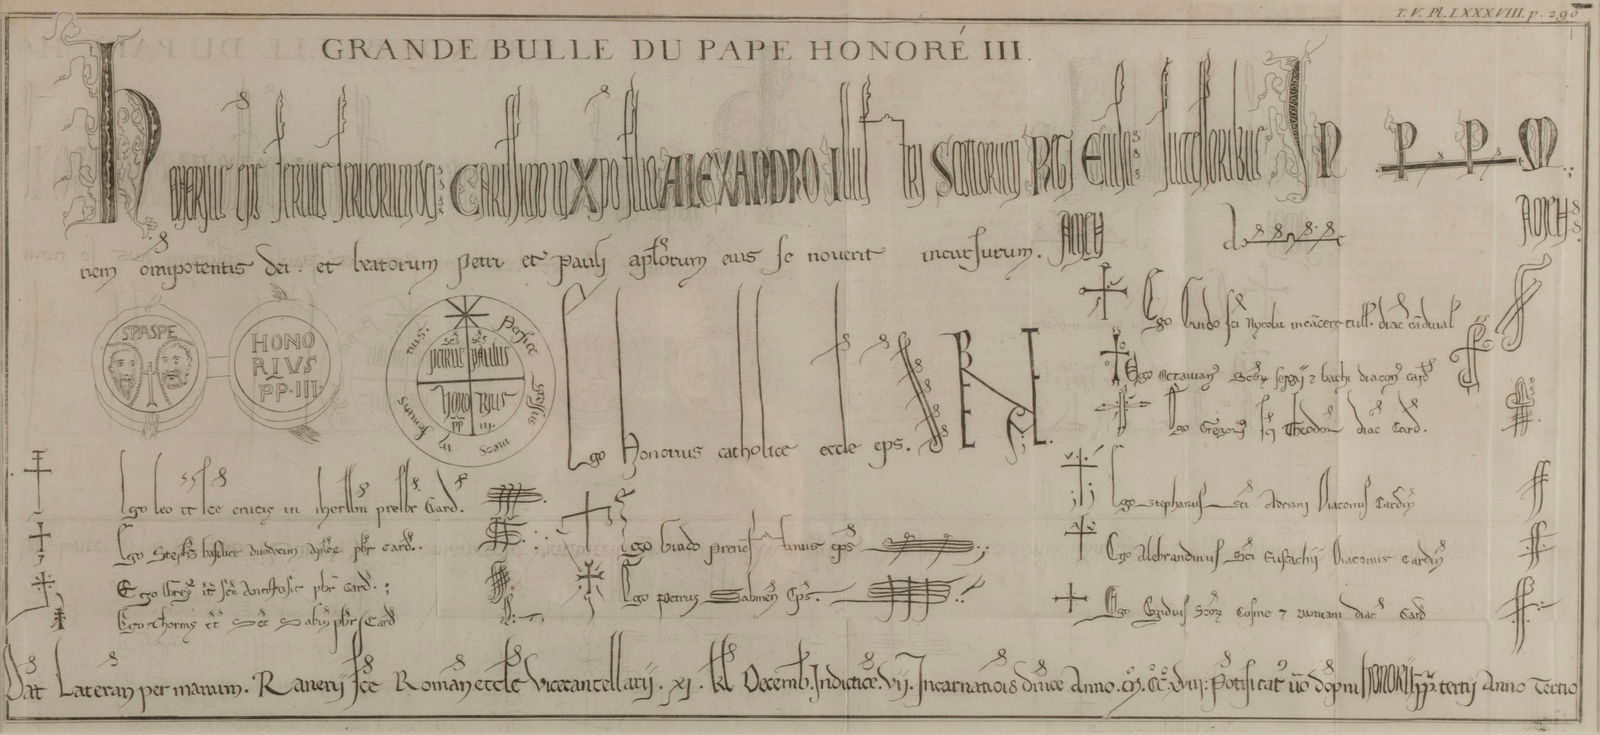 T. V. Pl. LXXXVIII. p. 290
GRANDE BULLE DU PAPE HONORÉ III.
Honorius eps servus servorum dei Carissimo in Xpo filio ALEXANDRO Illustri Scottorum Regi Eiusq; successoribus In PPM
nem omipotentis dei. et beatorum petri et pauli aplorum eius se noverit incursurum. AMEN AMEN
SPASPE
HONO
RIVS
PP·III·
Perfice gressus meos in semitis tuis.
Scs Scs
PETRUS PAULUS
HONO RIUS
PP III.
Ego Honorius catholice eccle eps.
Ego Guido sci Nycolai in carcere tull. diac cardinal
Ego Octavian Scor sergii z bachi diacon card
Ego Gregori sci Theodori diac Card.
Ego Stephanus Sci Adriani Diaconus Cardin
Ego Aldebrandinus Sci Eustachii Diaconus Cardin
Ego Egidius Scor Cosme z Damiani diac Card
Ego leo tt sce crucis in iherlm presbr Card.
Ego Steph basilice duodecim aplor pbr Card.
Ego Greg tt sce Anastasie pbr Card.
Ego Thomas tt Sce Sabine pbr Card
Ego Guido prenestinus eps
Ego Petrus Sabinen Eps.
Dat Lateran per manum. Ranerii sce Romane eccle Vicecancellarii. xi. kl Decemb. Indictioe. vii. Incarnatiois dnice Anno. M. CC. xviii: Potificat vo dopni HONORII pp. tertii Anno Tertio